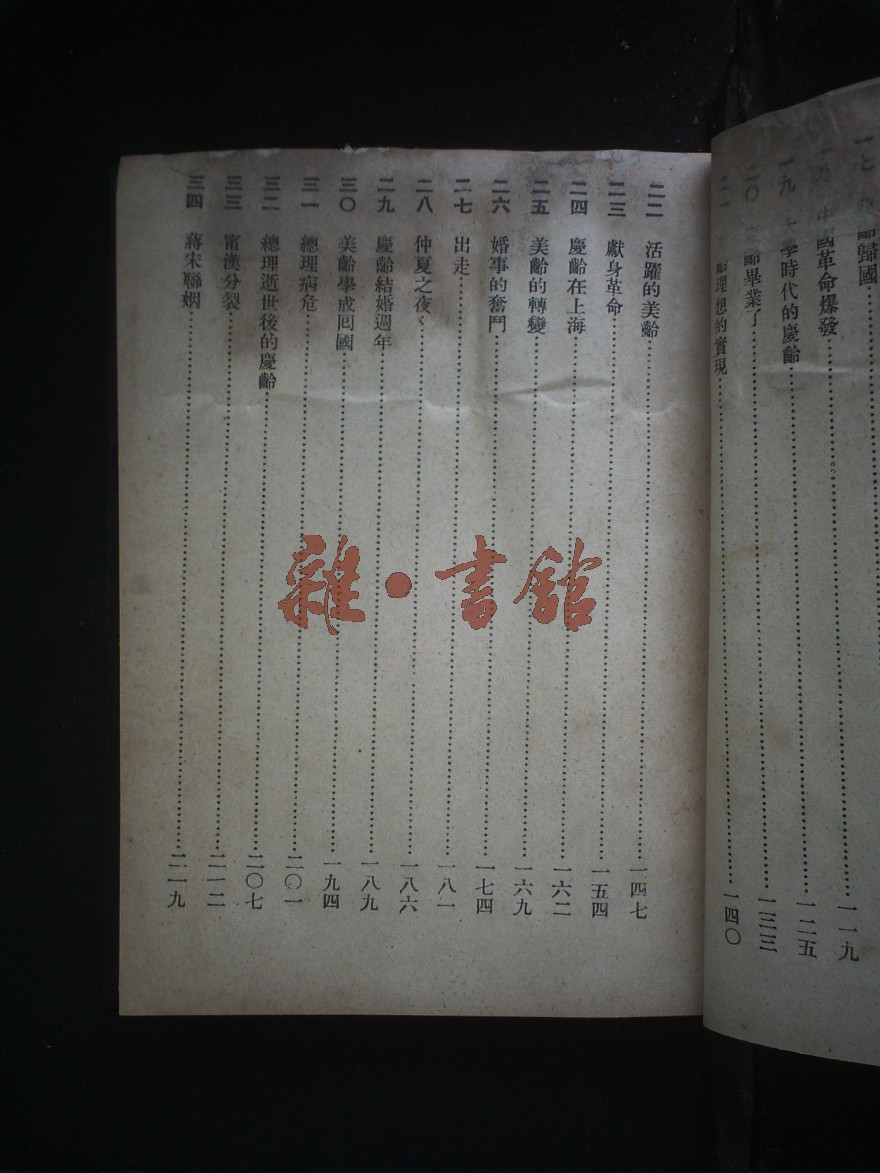 一七 齡歸國……一一九
中國革命爆發……一二五
一九 大學時代的慶齡……一三三
二〇 齡畢業了
二一 理想的實現……一四〇
二二 活躍的美齡……一四七
二三 獻身革命……一五四
二四 慶齡在上海……一六二
二五 美齡的轉變……一六九
二六 婚事的奮鬥……一七四
二七 出走……一八一
二八 仲夏之夜……一八六
二九 慶齡結婚週年……一八九
三〇 美齡學成囘國……一九四
三一 總理病危……二〇一
三二 總理逝世後的慶齡……二〇七
三三 甯漢分裂……二一二
三四 蔣宋聯姻……二一九
雜·書館